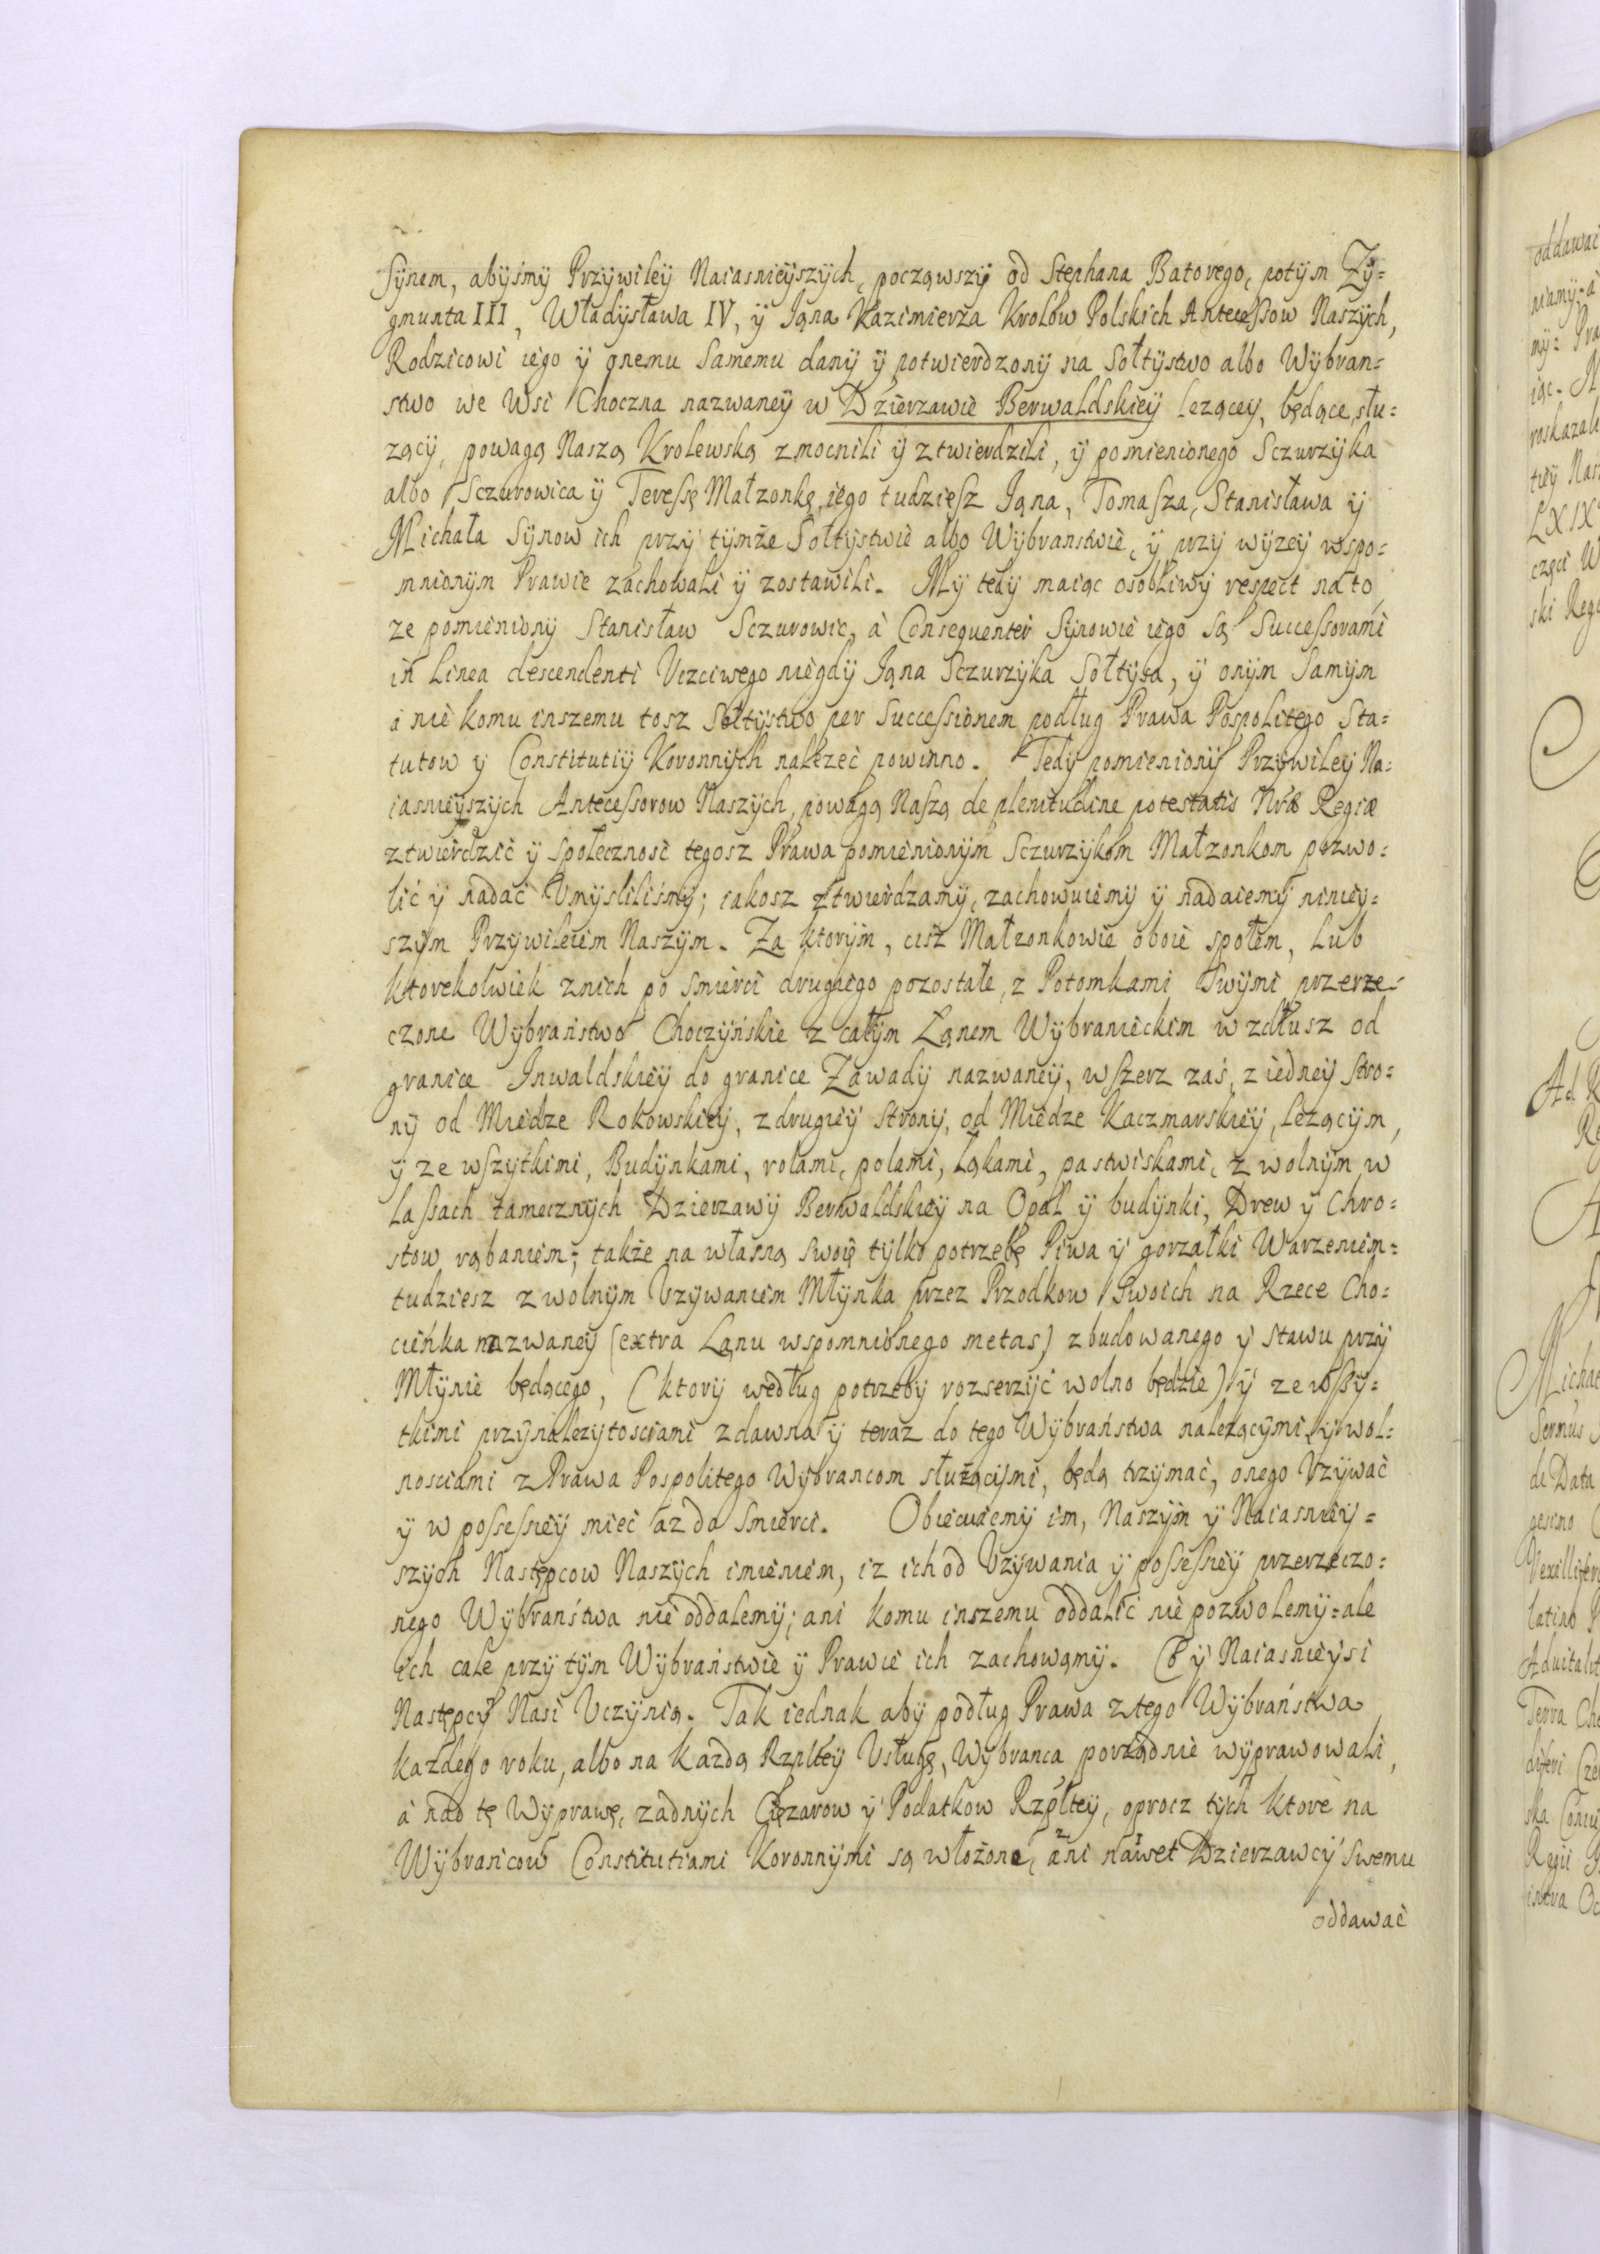 Synem, abyśmy Przywiley Naiasnieyszych, począwszy od Stephana Batorego, potym Zy=
gmunta III, Władysława IV, y Jana Kazimierza Krolow Polskich Antecessow Naszych,
Rodzicowi iego y onemu samemu dany y potwierdzony na Sołtystwo albo Wybran=
stwo we Wsi Choczna nazwaney w Dzierzawie Berwaldskiey lezącey, będące, słu=
zący, powagą Naszą Krolewską zmocnili y ztwierdzili, y pomienionego Sczurzyka
albo Sczurowica y Teressę Małzonkę iego tudziesz Jana, Tomasza, Stanisława y
Michała Synow ich przy tymże Sołtystwie albo Wybranstwie, y przy wyzey wspo=
mnionym Prawie zachowali y zostawili. My tedy maiąc osobliwy respect na to,
ze pomieniony Stanisław Sczurowic, à Consequenter Synowie iego są Successorami
in linea descendenti Uczciwego niegdy Jana Sczurzyka Sołtysa, y onym samym
a nie komu inszemu tosz Sołtystwo per Successionem podług Prawa Pospolitego Sta=
tutow y Constitutiy Koronnych nalezeć powinno. Tedy pomieniony Przywiley Na=
iasnieyszych Antecessorow Naszych, powagą Naszą de plenitudine potestatis Nræ Regiæ
ztwierdzić y społecznosc tegosz Prawa pomienionym Sczurzykom Małzonkom pozwo=
lić y nadać Umyslilismy; iakosz ztwierdzamy, zachowuiemy y nadaiemy niniey=
szym Przywileiem Naszym. Za ktorym, cisz Małzonkowie oboie społem, lub
ktorekolwiek znich po smierci drugiego pozostałe, z Potomkami swymi przerze=
czone Wybraństwo Choczyńskie z całym Łanem Wybranieckim wzdłusz od
granice Inwaldskiey do granice Zawady nazwaney, wszerz zaś, z iedney stro=
ny od Miedze Rokowskiey, z drugiey strony, od Miedze Kaczmarskiey, lezącym,
y ze wszytkimi, Budynkami, rolami, polami, łąkami, pastwiskami, z wolnym w
Lassach tamecznych Dzierzawy Berwaldskiey na Opał y budynki, Drew y Chro=
stow rąbaniem; także na własną swoię tylko potrzebę Piwa y gorzałki Warzeniem=
tudziesz z wolnym Uzywaniem Młynka przez Przodkow Swoich na Rzece Cho=
cieńka nazwaney (extra Łanu wspomnionego metas) zbudowanego y Stawu przy
Młynie będącego, (ktory według potrzeby rozserzyć wolno będzie) y ze wszy=
tkimi przynalezytosciami zdawna y teraz do tego Wybraństwa nalezącymi, y wol=
nosciami z Prawa Pospolitego Wybrancom służącymi, będą trzymać, onego Uzywać
y w possessiey mieć az do smierci. Obiecuiemy im, Naszym y Naiasniey=
szych Następcow Naszych imieniem, iz ich od Uzywania y possessiey przerzeczo=
nego Wybraństwa nie oddalemy; ani komu inszemu oddalić nie pozwolemy=ale
ich cale przy tym Wybraństwie y Prawie ich zachowamy. Co y Naiasnieysi
Następcy Nasi Uczynią. Tak iednak aby podług Prawa z tego Wybraństwa
każdego roku, albo na każdą Rzpltey Usługę, Wybranca porządnie wyprawowali,
à nad tę Wyprawę, zadnych Ciężarow y Podatkow Rzpltey, oprocz tych ktore na
Wybrancow Constitutiami Koronnymi są włożone, ani nawet Dzierzawcy swemu
oddawać